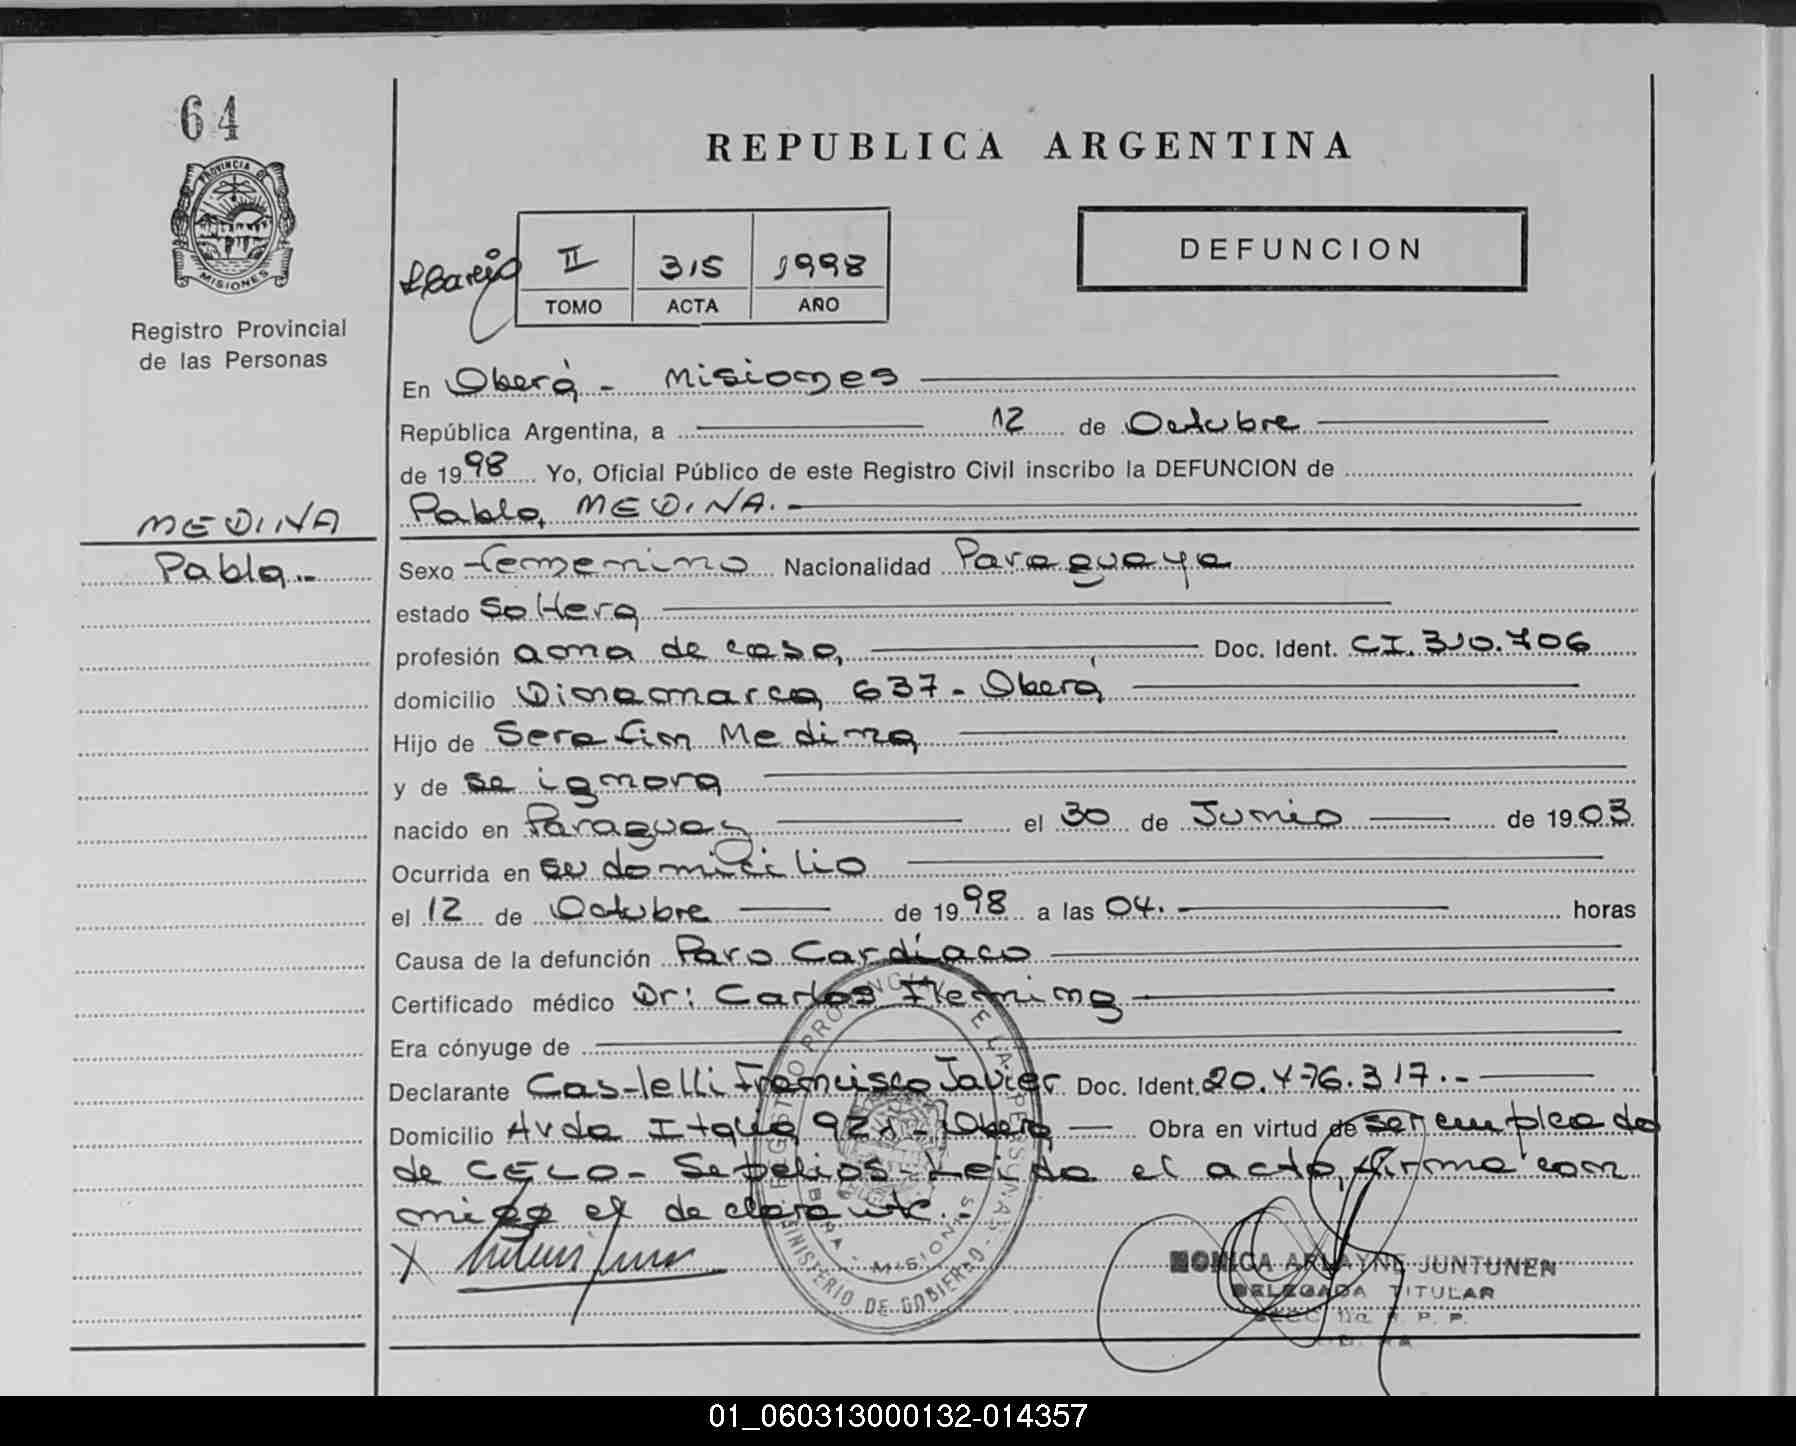 64
PROVINCIA DE
MISIONES
Registro Provincial
de las Personas
REPUBLICA ARGENTINA
DEFUNCION
II 315 1998
TOMO ACTA AÑO
En Oberá - Misiones
República Argentina, a 12 de Octubre
de 1998 Yo, Oficial Público de este Registro Civil inscribo la DEFUNCION de
Pabla, MEDINA.-
MEDINA
Pabla.-
Sexo femenino Nacionalidad Paraguaya
estado soltera
profesión ama de casa, Doc. Ident. CI. 310.706
domicilio Dinamarca 637 - Oberá
Hijo de Serafin Medina
y de se ignora
nacido en Paraguay el 30 de Junio de 1903
Ocurrida en su domicilio
el 12 de Octubre de 1998 a las 04. horas
Causa de la defunción Paro Cardíaco
Certificado médico Dr: Carlos Fleming
Era cónyuge de
Declarante Castelli Francisco Javier Doc. Ident. 20.476.317.-
Domicilio Avda Italia Oberá Obra en virtud de ser empleado
de CELO - Sepelios - Leida el acta, firma con
migo el declarante.-
X
REGISTRO PROVINCIAL DE LAS PERSONAS - MINISTERIO DE GOBIERNO
OBERA - MISIONES
MONICA ARLAYNE JUNTUNEN
DELEGADA TITULAR
R. P. P.
01_060313000132-014357